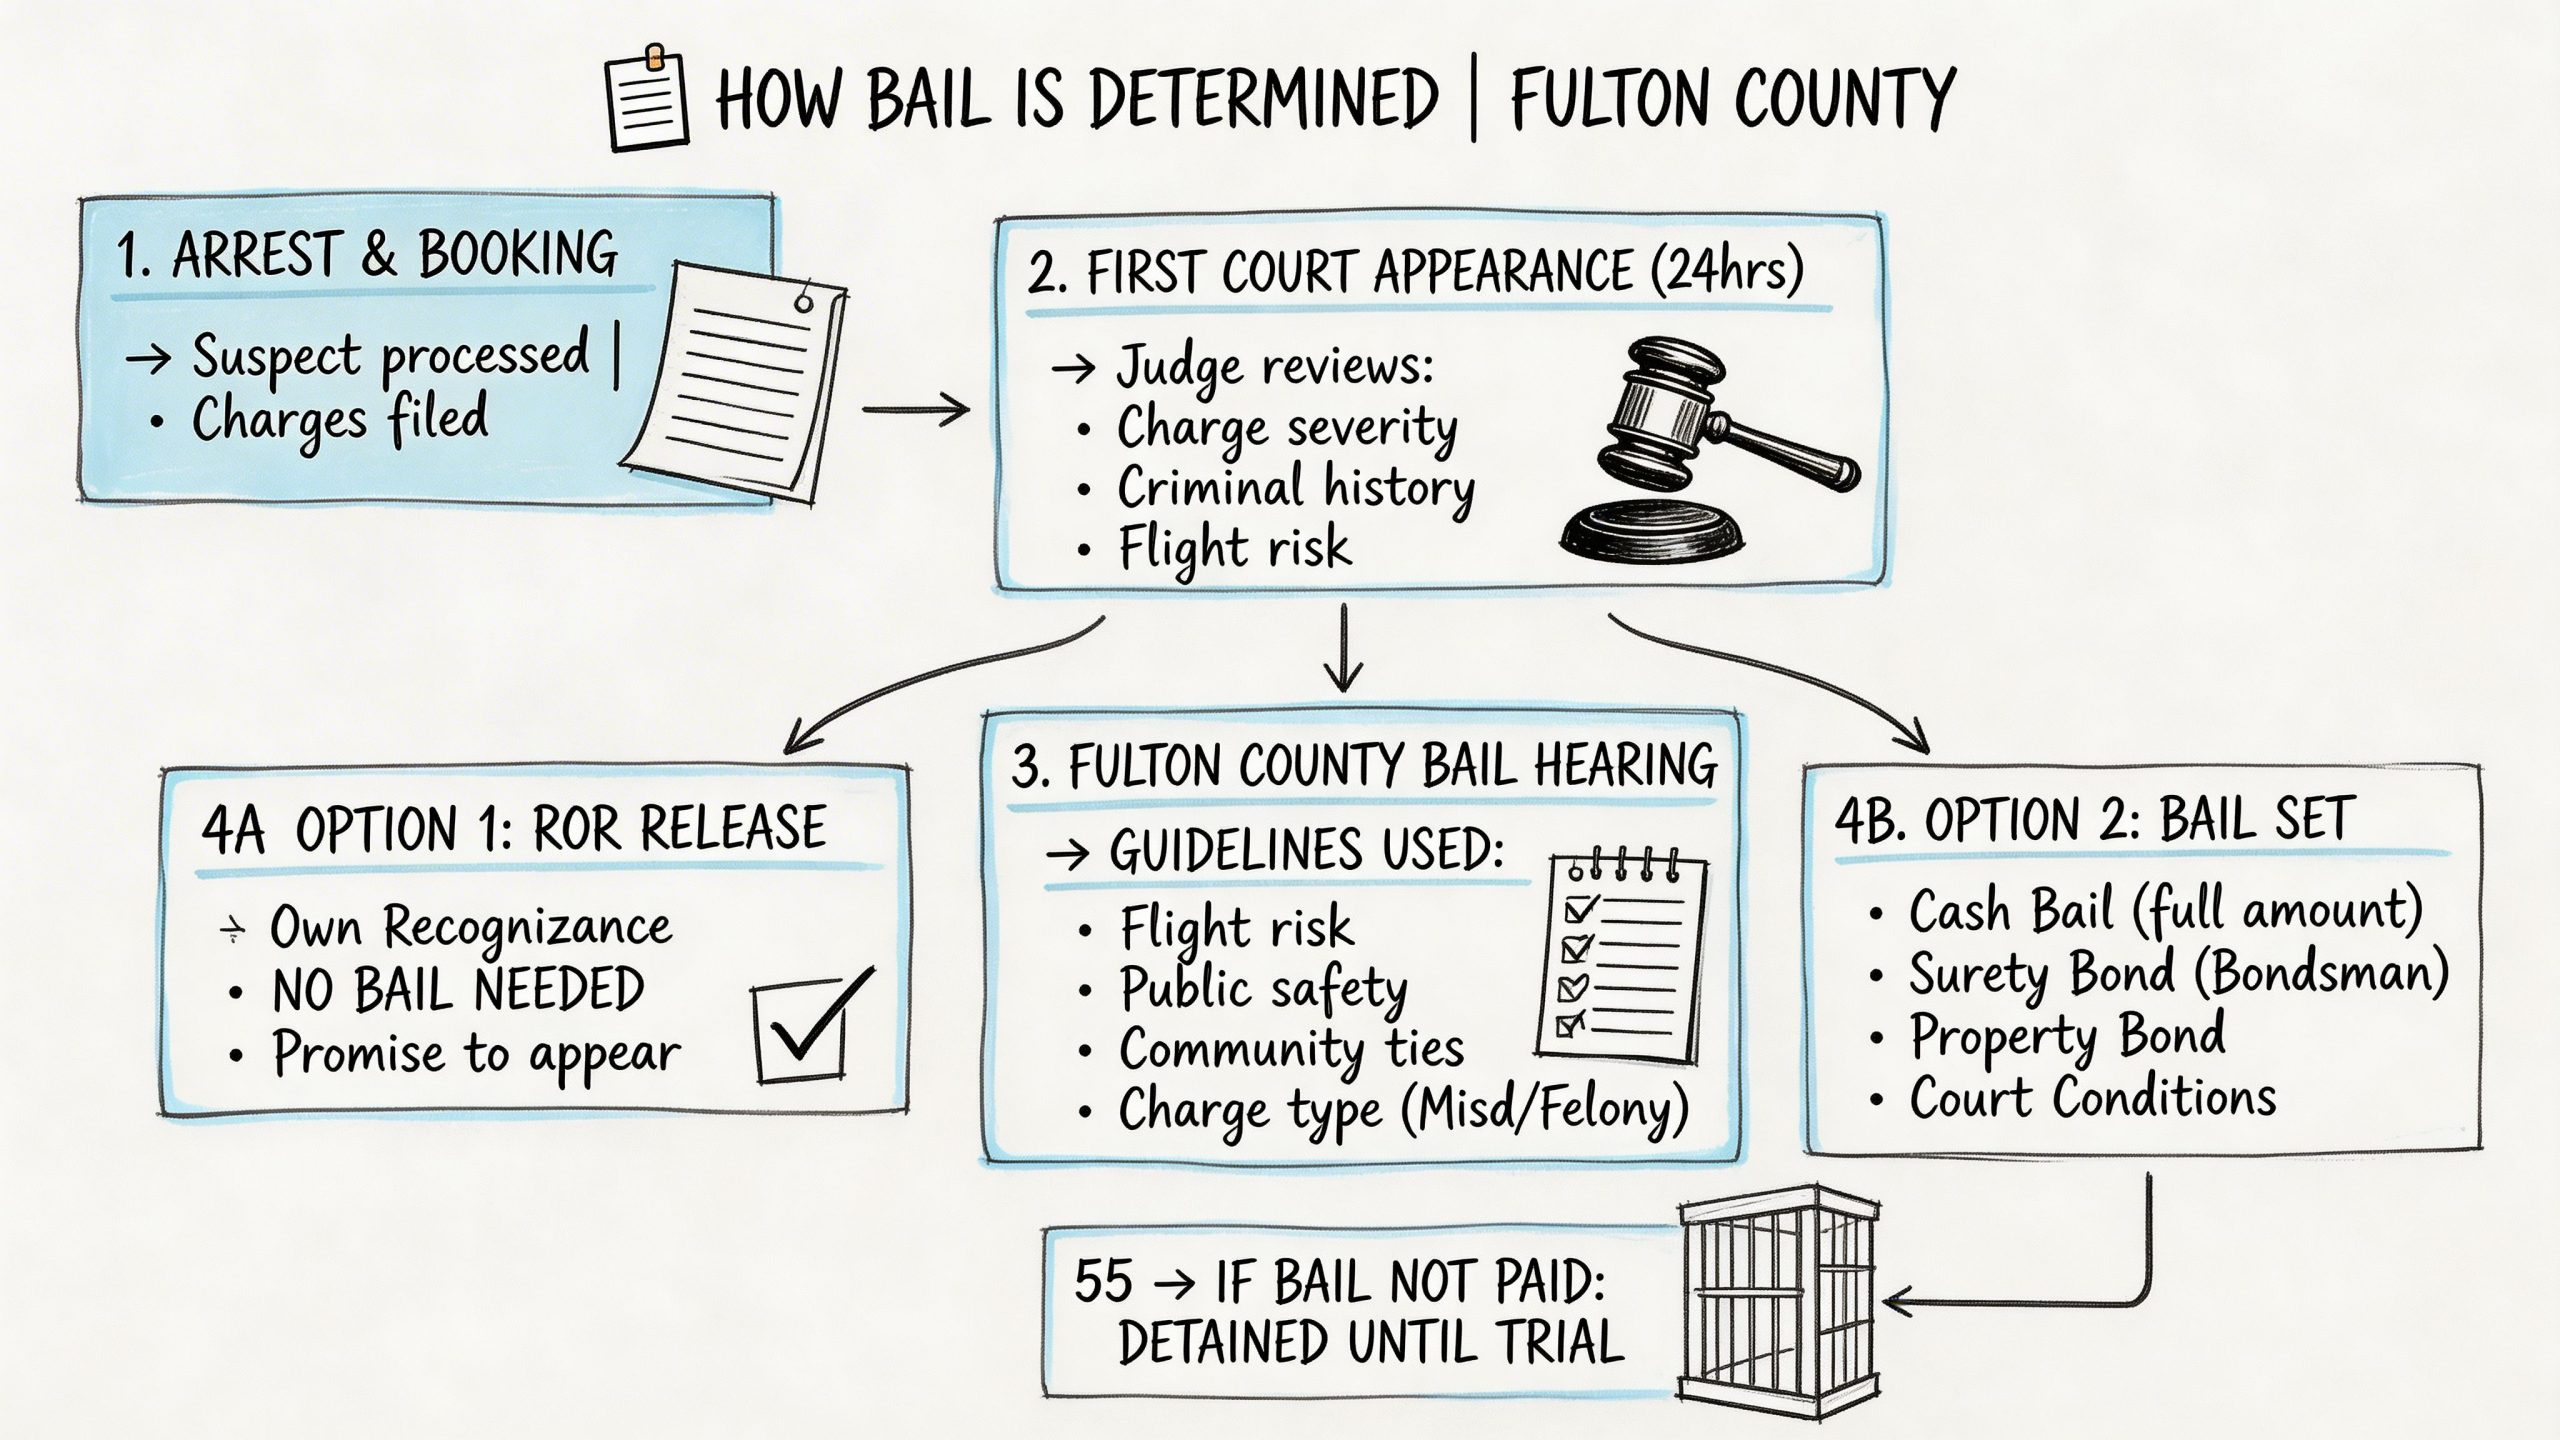 HOW BAIL IS DETERMINED | FULTON COUNTY
1. ARREST & BOOKING
→ Suspect processed |
• Charges filed
2. FIRST COURT APPEARANCE (24hrs)
→ Judge reviews:
• Charge severity
• Criminal history
• Flight risk
4A OPTION 1: ROR RELEASE
→ Own Recognizance
• NO BAIL NEEDED
• Promise to appear
3. FULTON COUNTY BAIL HEARING
→ GUIDELINES USED:
• Flight risk
• Public safety
• Community ties
• Charge type (Misd/Felony)
4B. OPTION 2: BAIL SET
• Cash Bail (full amount)
• Surety Bond (Bondsman)
• Property Bond
• Court Conditions
55 → IF BAIL NOT PAID:
DETAINED UNTIL TRIAL